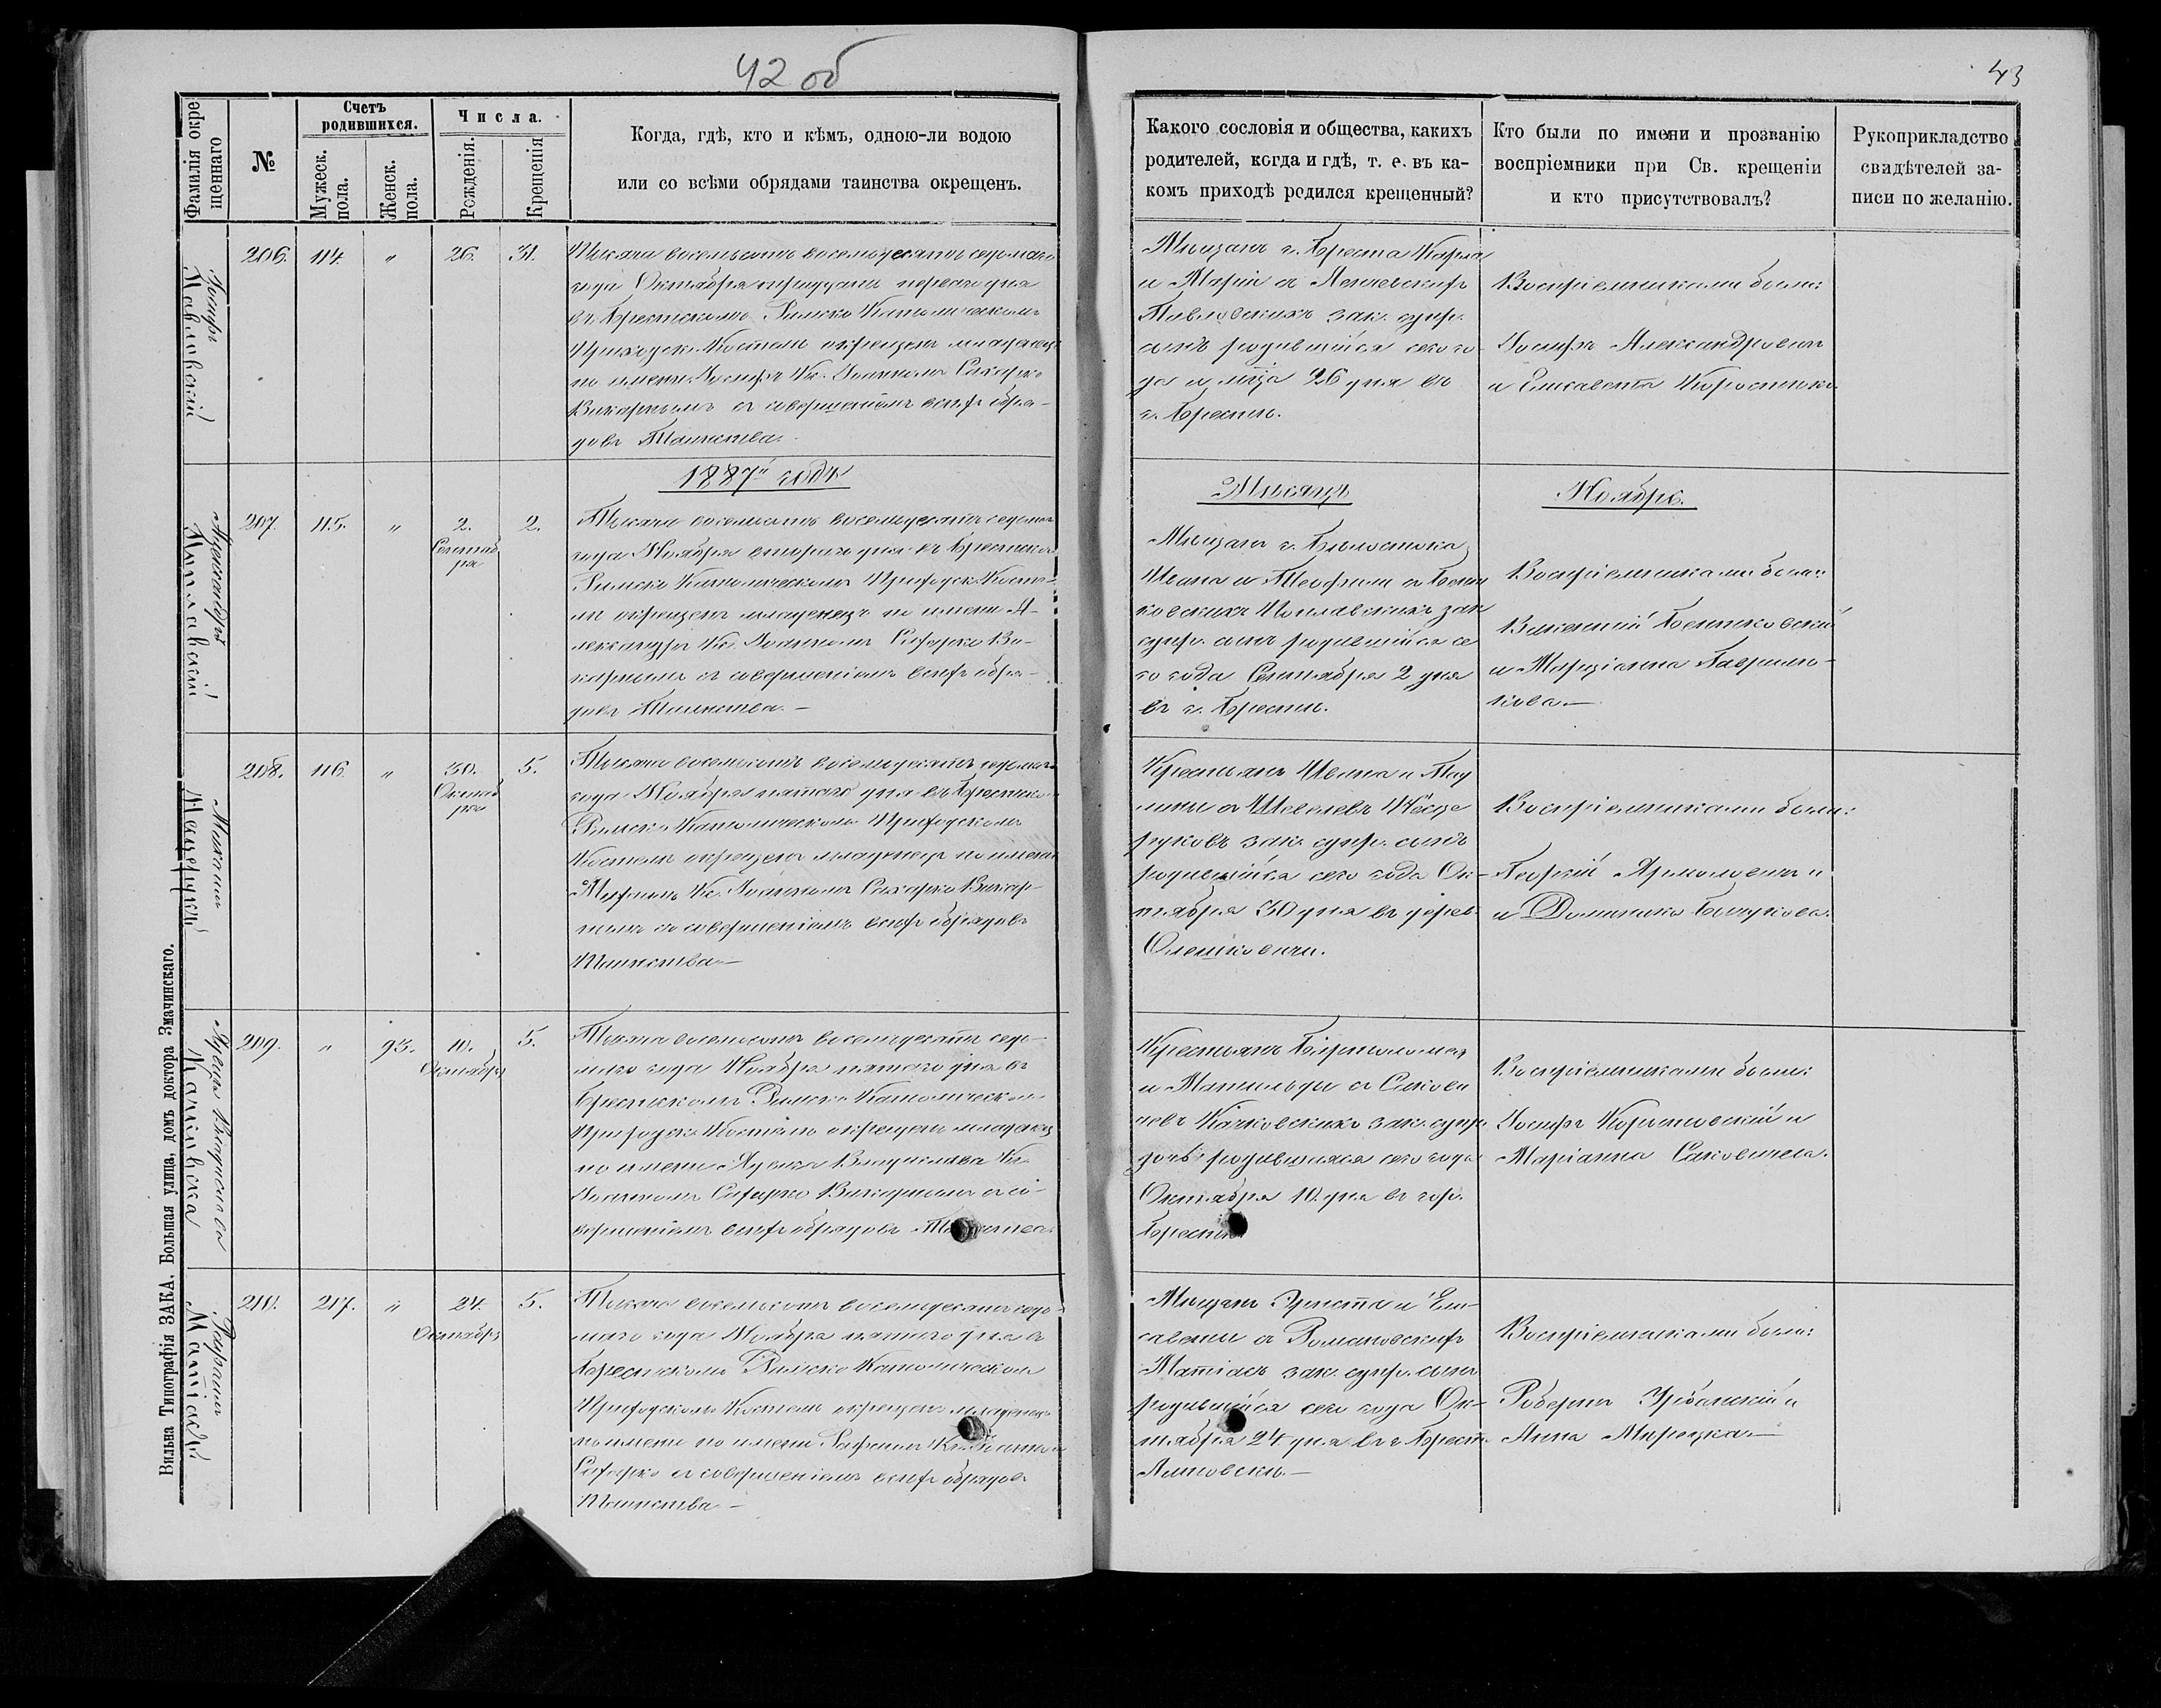 42 об
43
Фамилія окре
щеннаго
№
Счетъ
родившихся.
Мужеск.
пола.
Женск.
пола.
Числа.
Рожденія.
Крещенія
Когда, гдѣ, кто и кѣмъ, одною-ли водою
или со всѣми обрядами таинства окрещенъ.
Какого сословія и общества, какихъ
родителей, когда и гдѣ, т. е. въ ка-
комъ приходѣ родился крещенный?
Кто были по имени и прозванію
воспріемники при Св. крещеніи
и кто присутствовалъ?
Рукоприкладство
свидѣтелей за-
писи по желанію.
Іосифъ
Павловскій
206.
114.
"
26.
31.
Тысяча восемьсотъ восемьдесятъ седьмаго
года Октября тридцать перваго дня
въ Брестскомъ Римско Католическомъ
Приходск. Костелѣ окрещенъ младенецъ
по имени Іосифъ Кс. Іоанномъ Сахарко
Викарнымъ съ совершеніемъ всѣхъ обря-
довъ Таинства.
Мѣщанъ г. Бреста Карла
и Маріи съ
Павловскихъ зак. супр.
сынъ родившійся сего го-
да и мѣсяца 26 дня въ
г. Брестѣ.
Воспріемниками были:
Іосифъ Александровичъ
и Елисавета
1887й годъ
Мѣсяцъ
Ноябрь.
Александръ
207.
115.
"
2.
Сентяб
ря
2.
Тысяча восемьсотъ восемьдесятъ седьмаго
года Ноября втораго дня въ Брестскомъ
Римско Католическомъ Приходск. Косте-
лѣ окрещенъ младенецъ по имени А-
лександръ Кс. Іоанномъ Сахарко Ви-
карнымъ съ совершеніемъ всѣхъ обря-
довъ Таинства.—
Мѣщанъ г. Бѣлостока
Ивана и Теофили съ
ковскихъ зак.
супр. сынъ родившійся се
го года Сентября 2 дня
въ г. Брестѣ.
Воспріемниками были:
Викентій
и Марціанна Гаврилю-
кова.—
Михаилъ
208.
116.
"
30.
Октяб
ря
5.
Тысяча восемьсотъ восемьдесятъ седьмаго
года Ноября пятаго дня въ Брестскомъ
Римско Католическомъ Приходскомъ
Костелѣ окрещенъ младенецъ по имени
Михаилъ Кс. Іоанномъ Сахарко Викар-
нымъ съ совершеніемъ всѣхъ обрядовъ
Таинства—
Крестьянъ Ивана и Пау
лины съ
зак. супр. сынъ
родившійся сего года Ок-
тября 30 дня въ дерев.
Олешковичи.
Воспріемниками были:
Георгій Ярмоловичъ и
и Доминика
Ядвига Владислава
Качковска
209.
"
93.
10.
Октября
5.
Тысяча восемьсотъ восемьдесятъ седь-
маго года Ноября пятаго дня въ
Брестскомъ Римско Католическомъ
Приходск. Костелѣ окрещенъ младенецъ
по имени Ядвига Владислава Кс.
Іоанномъ Сахарко Викарнымъ съ со-
вершеніемъ всѣхъ обрядовъ Таинства
Крестьянъ Бартоломея
и Матильды съ Сакови
чевъ Качковскихъ зак. супр.
дочь родившаяся сего года
Октября 10 дня въ гор.
Брестѣ
Воспріемниками были:
Іосифъ и
Маріанна Саковичева.
Рафаилъ
210.
217.
"
24.
Октября
5.
Тысяча восемьсотъ восемьдесятъ седь-
маго года Ноября пятаго дня въ
Брестскомъ Римско Католическомъ
Приходскомъ Костелѣ окрещенъ младенецъ
по имени по имени Рафаилъ Кс. Іоанномъ
Сахарко съ совершеніемъ всѣхъ обрядовъ
Таинства—
Мѣщанъ Эрнеста и Ели-
саветы съ Романовскихъ
Матіасъ зак. супр. сынъ
родившійся сего года Ок-
тября 24 дня въ г. Брестѣ
Литовскѣ.—
Воспріемниками были:
Робертъ Урбанскій и
Анна
Вильна Типографія ЗАКА. Большая улица, домъ доктора Змачинскаго.